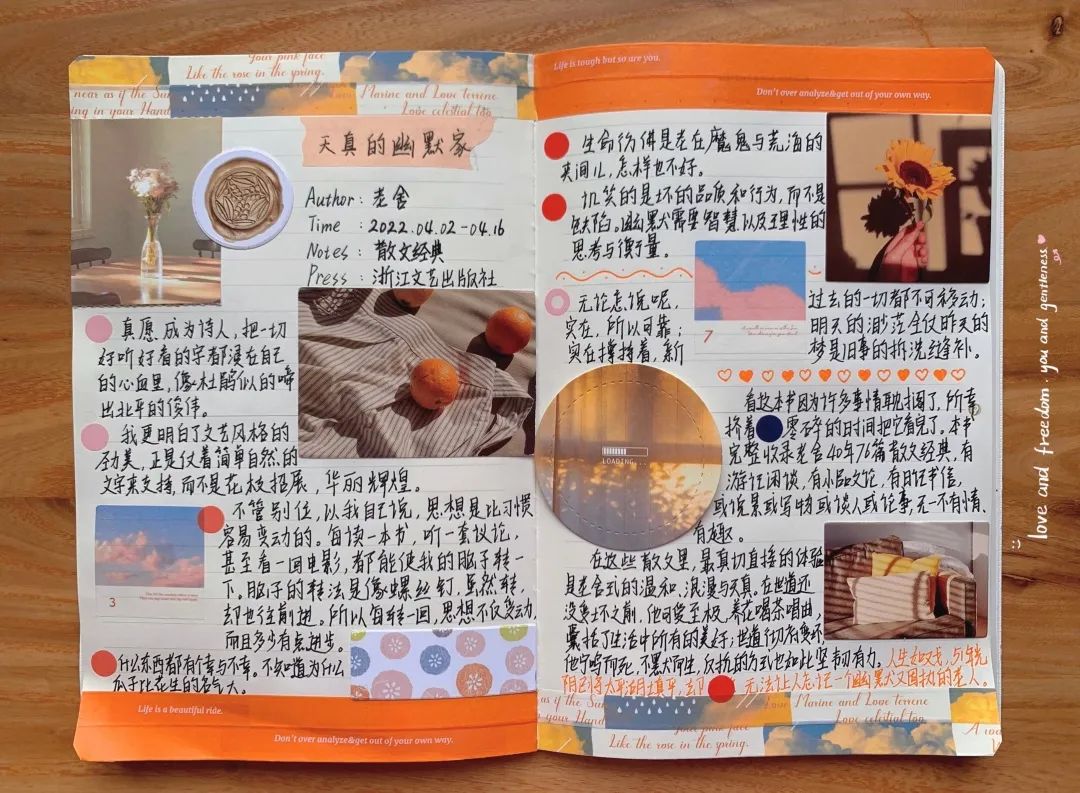 Your pink face
Like the rose in the spring.
near as if the Sun
ing in your Hand
Marine and Love terrene
Love celestial too
天真的幽默家
Author：老舍
Time：2022.04.02-04.16
Notes：散文经典
Press：浙江文艺出版社
真愿成为诗人，把一切
好听好看的字都浸在自己
的心血里，像杜鹃似的啼
出北平的俊伟。
我更明白了文艺风格的
劲美，正是仗着简单自然的
文字来支持，而不是花枝招展，华丽辉煌。
不管别位，以我自己说，思想是比习惯
容易变动的。每读一本书，听一套议论，
甚至看一回电影，都能使我的脑子转一
下。脑子的转法是像螺丝钉，虽然转，
却也往前进。所以每转一回，思想不仅变动，
而且多少有点进步。
3
什么东西都有个幸与不幸。不知道为什么
瓜子比花生的名气大。
Life is a beautiful ride.
Don't over analyze&get out of your own way.
Life is tough but so are you.
Don't over analyze&get out of your own way.
生命仿佛是老在魔鬼与荒海的
夹间儿，怎样也不好。
讥笑的是坏的品质和行为，而不是
缺陷。幽默需要智慧以及理性的
思考与衡量。
无论怎说呢，
实在，所以可靠；
7
过去的一切都不可移动；
明天的渺茫全仗昨天的
实在撑持着，新
梦是旧事的拆洗缝补。
LOADING...
看这本书因为许多事情耽搁了，所幸
挤着零碎的时间把它看见了。本书
完整收录老舍40年76篇散文经典，有
游记闲谈，有小品文论，有日记书信，
或说景或写物或谈人或记事，无一不有情、
有趣。
在这些散文里，最真切直接的体验
是老舍式的温和、浪漫与天真。在世道还
没变坏之前，他可爱至极，养花喝茶唱曲，
囊括了生活中所有的美好；世道
他宁鸣而死，不默而生，反抗的方式也如此坚韧有力。人生如戏，
太平湖
无法让人忘记一个幽默又固执的老人。
as if the S
your Hand
your pink face
Like the rose in the spring.
Marine and Love terrene
Love celestial too
love and freedom. you and gentleness.